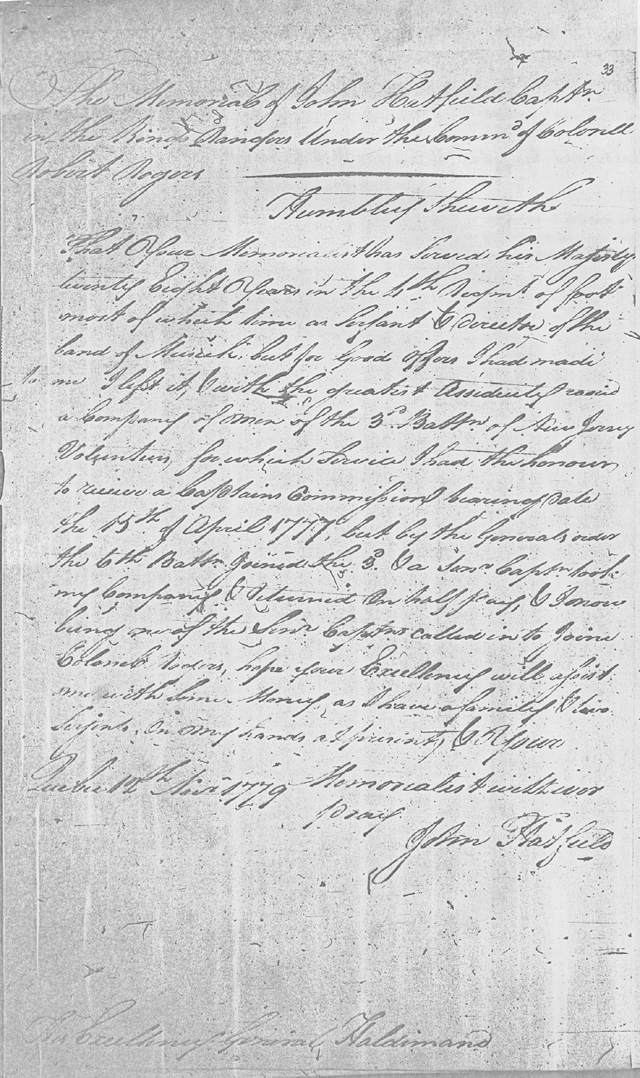 33
The Memorial of John Hatfield Captn.
in the Kings Rangers Under the Comm.d of Colonell
Robert Rogers
Humbley Sheweth
That Your Memorialist has Served his Majesty
twenty Eight Years in the 4th Regmt. of foot
most of which time as Serjant & Director of the
band of Musick, but for Good offers I had made
to me I left it, & with the
a Company of Men of the 3d. Battn. of New Jersey
Volunteers, for which Service I had the honour
to receive a Captains Commission bearing date
the 15th of April 1777, but by the Generals order
the 6th Battn. Joined the 3d. & a Senr. Captn. took
my Company, & I returned on half pay, & I now
being one of the Senr. Captns. called in to Joine
Colonel Rogers, hope your Excellency will assist
me with Some Money, as I have a family & two
Serjants, On my hands at present, & Your
Quebec 12th Novr. 1779 Memorialist will ever
pray
John Hatfield
His Excellency General Haldimand